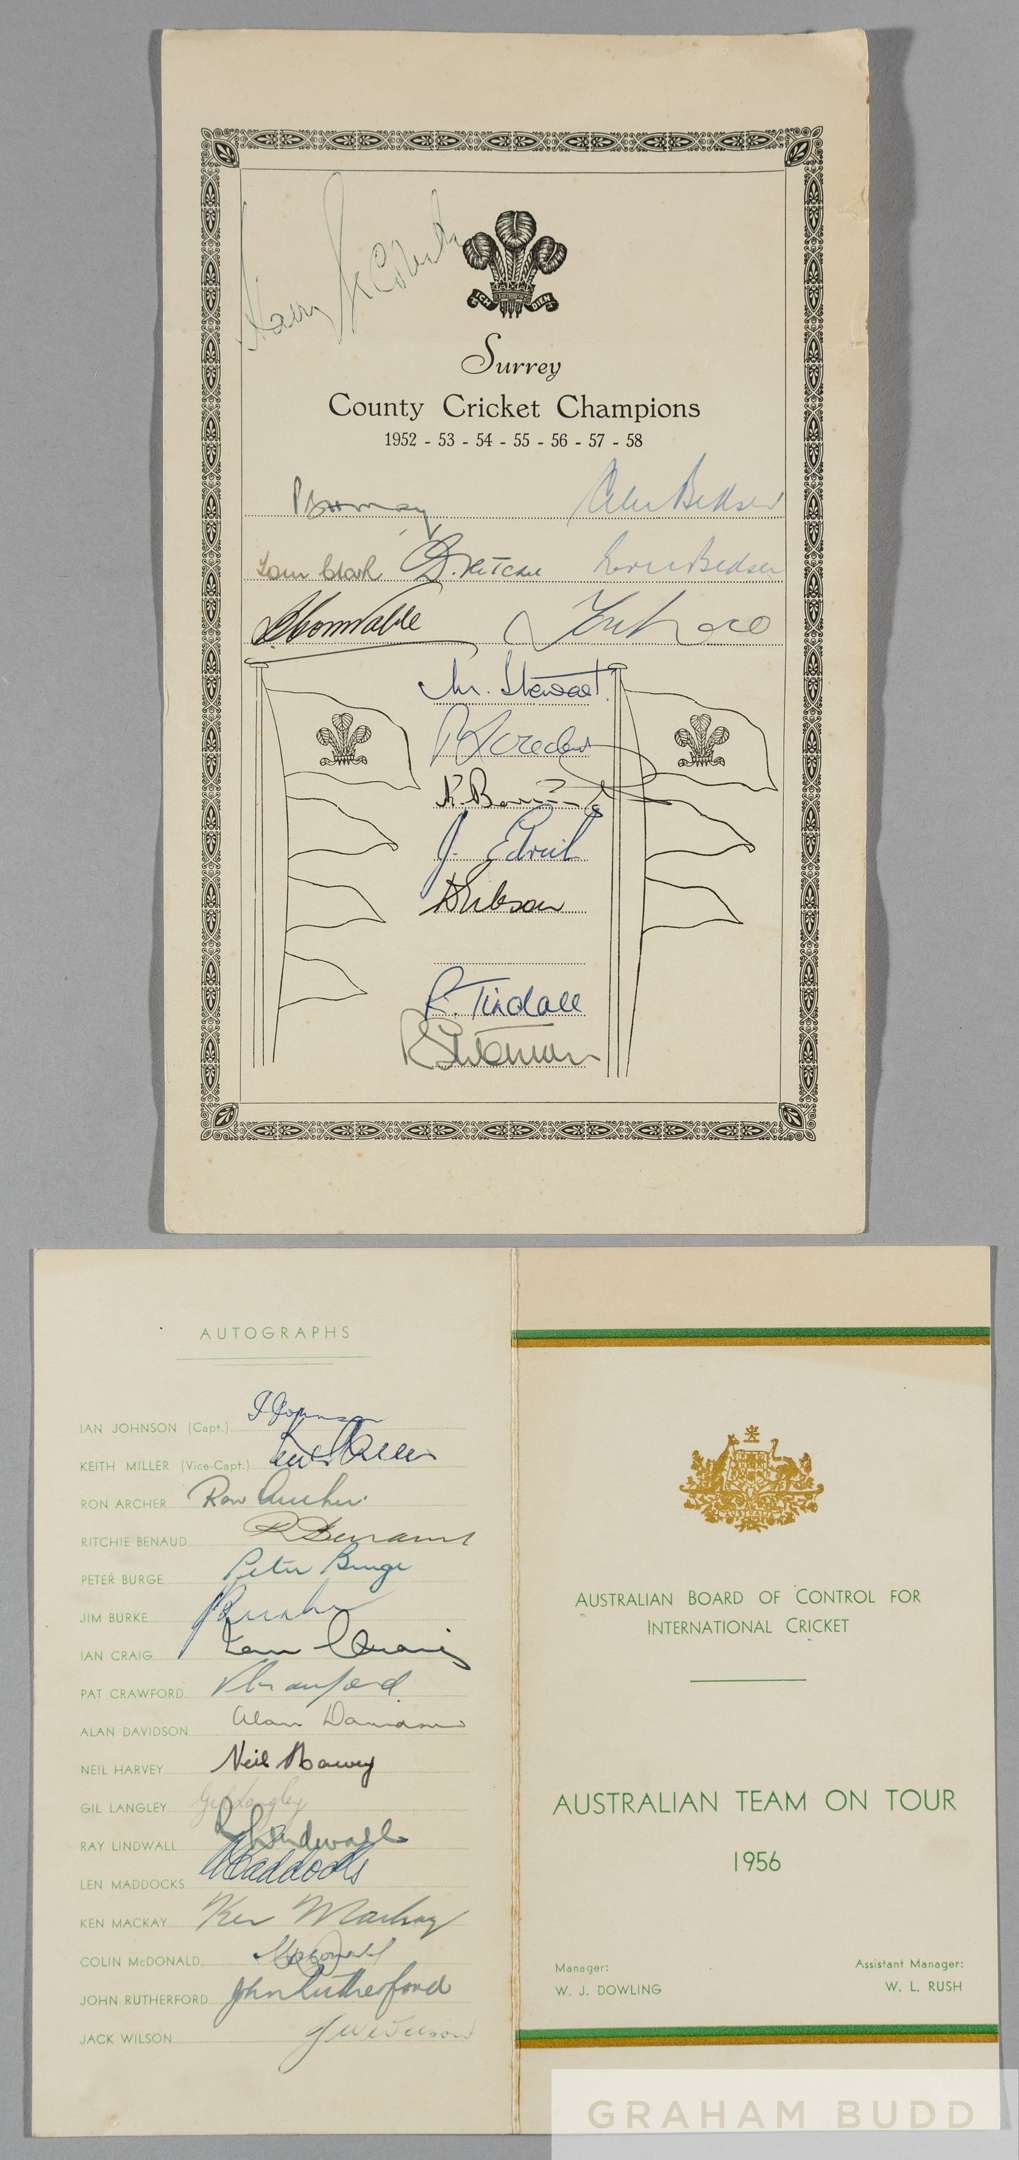 ICH DIEN
Surrey
County Cricket Champions
1952 - 53 - 54 - 55 - 56 - 57 - 58
Alec Bedser
Tom Clark D. Fletcher Eric Bedser
B Constable
M. Stewart
K. Barrington
J. Edrich
D Gibson
R. Tindall
AUTOGRAPHS
IAN JOHNSON (Capt.) I Johnson
KEITH MILLER (Vice-Capt.) Keith Miller
RON ARCHER Ron Archer
RITCHIE BENAUD R Benaud
PETER BURGE Peter Burge
JIM BURKE J Burke
IAN CRAIG Ian Craig
PAT CRAWFORD P Crawford
ALAN DAVIDSON Alan Davidson
NEIL HARVEY Neil Harvey
GIL LANGLEY Gil Langley
RAY LINDWALL R Lindwall
LEN MADDOCKS L Maddocks
KEN MACKAY Ken Mackay
COLIN McDONALD McDonald
JOHN RUTHERFORD John Rutherford
JACK WILSON J W Wilson
AUSTRALIAN BOARD OF CONTROL FOR
INTERNATIONAL CRICKET
AUSTRALIAN TEAM ON TOUR
1956
Manager:
W. J. DOWLING
Assistant Manager:
W. L. RUSH
GRAHAM BUDD